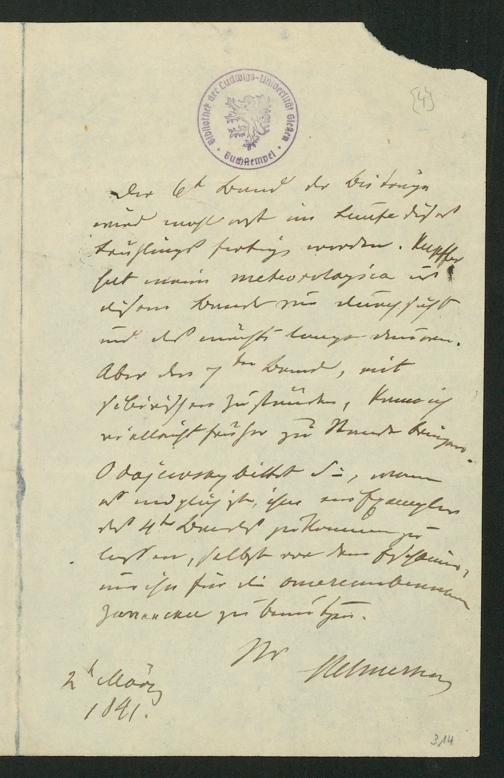 Bibliothek der Ludwigs-Universität Gießen
Buchstempel
(4)
Der 6te Band der Beiträge
wird wohl erst im Laufe dieses
Frühlings fertig werden. Kupffer
hat meine meteorologica in
diesem Bande zur Durchsicht
und das möchte lange dauern.
Aber den 7ten Band, mit
sibirischen Zuständen, kann ich
vielleicht früher zu Stande bringen.
Odojewsky bittet Sie, wenn
es möglich ist, ihm ein Exemplar
des 4ten Bandes zukommen zu
lassen, selbst vor dem Erscheinen,
um ihn für die
zu benutzen.
Ihr Helmersen
2t März
1841.
314